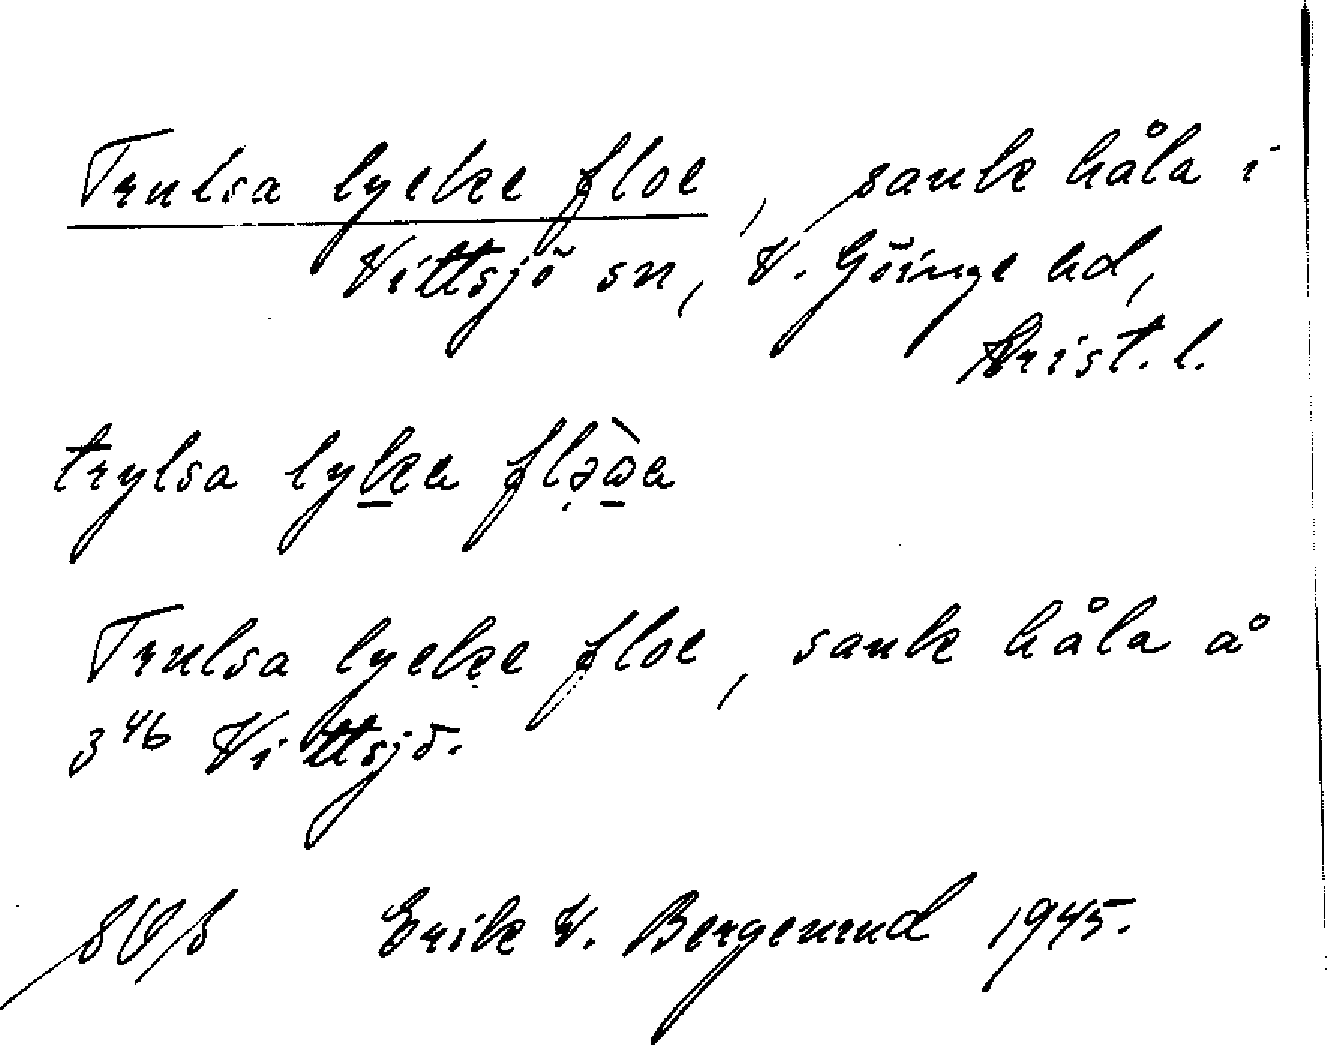 Trulsa lycke floe, sank håla i
Vittsjö sn, V. Göinge hd,
Krist. l.
trylsa lyka
Trulsa lycke floe, sank håla å
3⁴⁶ Vittsjö.
Erik V. Bergenrud 1945.